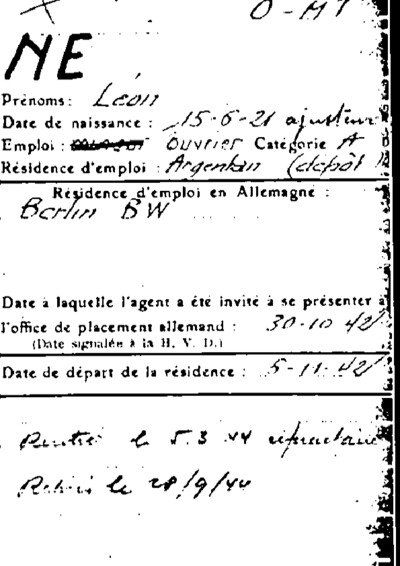 O-MT
NE
Prénoms : Léon
Date de naissance : 15-6-21 ajusteur
Emploi : ouvrier Catégorie A
Résidence d'emploi : Argentan (dépôt)
Résidence d'emploi en Allemagne :
Berlin BW
Date à laquelle l'agent a été invité à se présenter à
l'office de placement allemand : 30-10-42
(Date signalée à la H. V. D.)
Date de départ de la résidence : 5-11-42
Rentré le 5.3 44 réfractaire
le 28/9/44